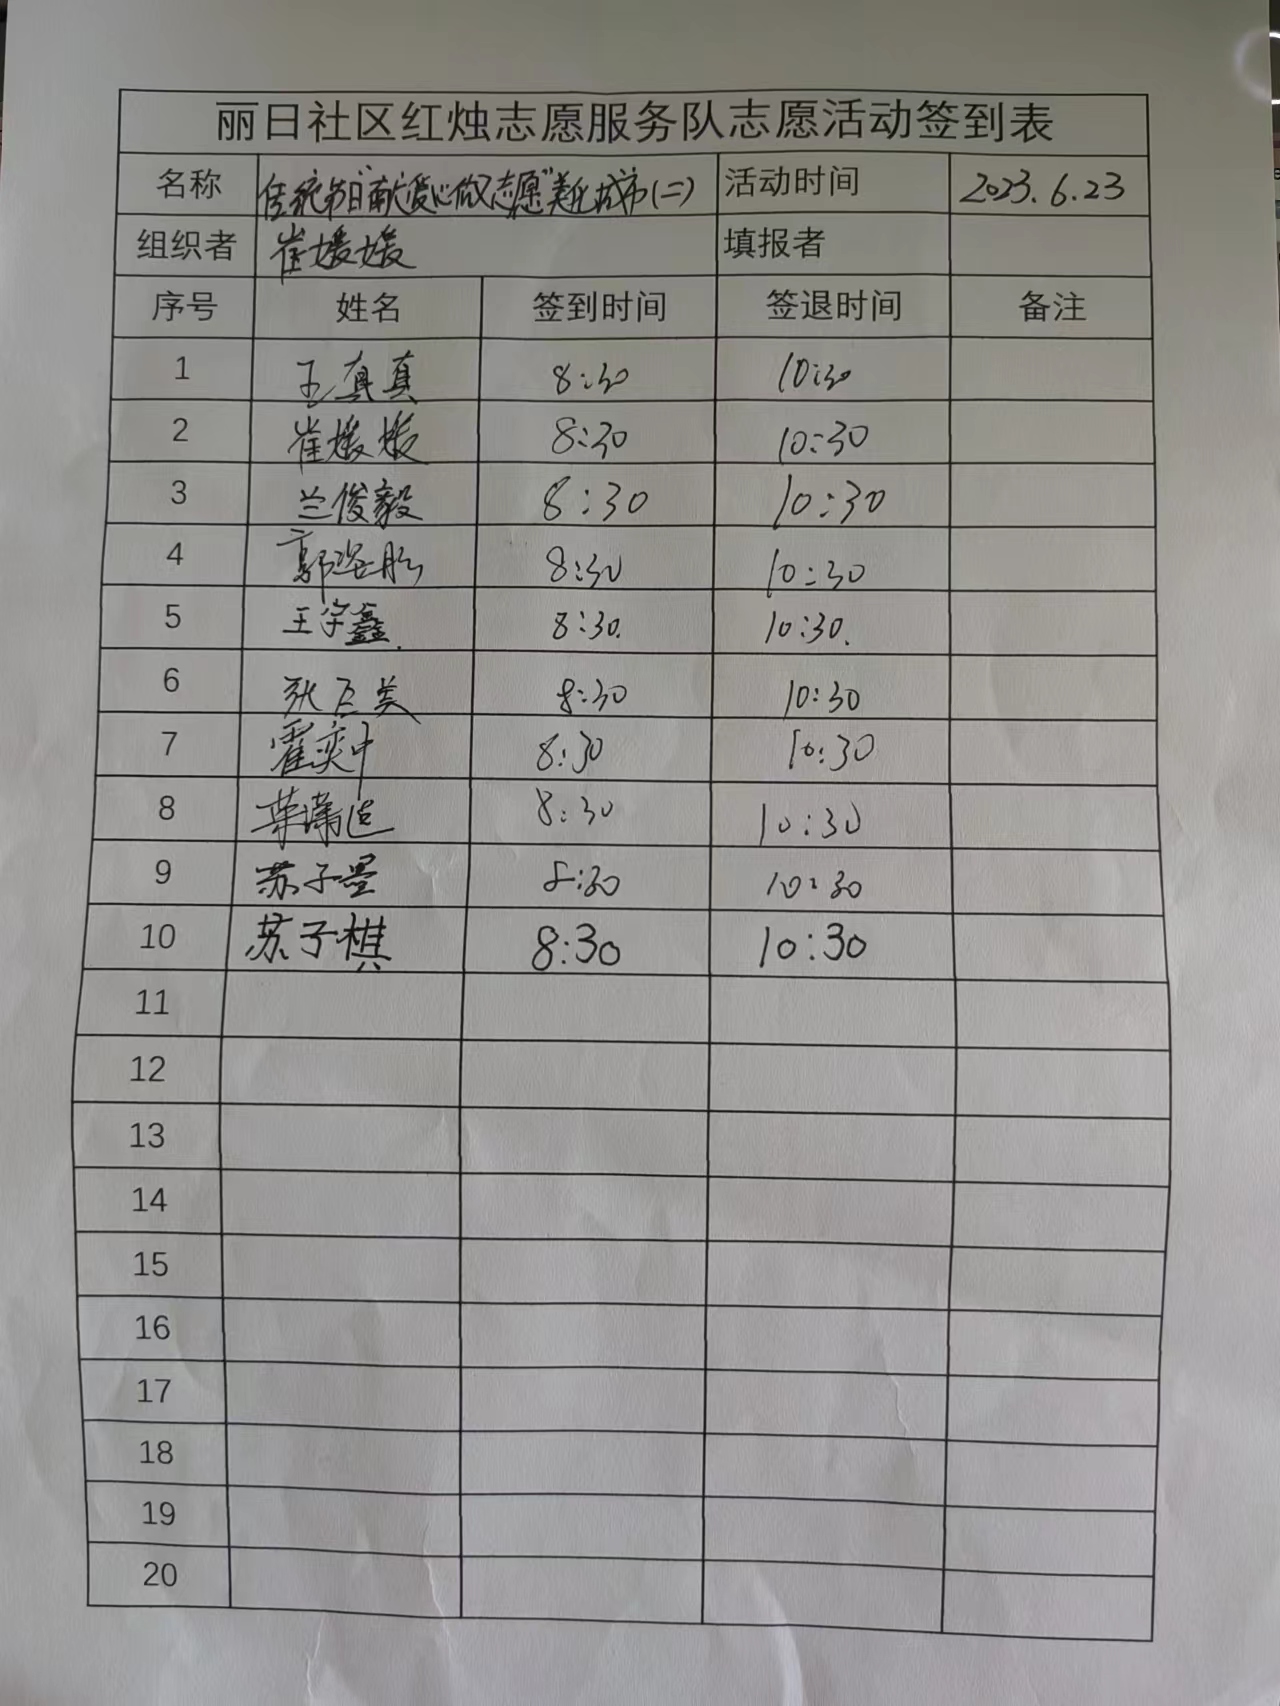 丽日社区红烛志愿服务队志愿活动签到表
名称 传统节日"献爱心做志愿"美化城市(二) 活动时间 2023.6.23
组织者 崔媛媛 填报者
序号 姓名 签到时间 签退时间 备注
1 王真真 8:30 10:30
2 崔媛媛 8:30 10:30
3 兰俊毅 8:30 10:30
4 郭 8:30 10:30
5 王宇鑫. 8:30. 10:30.
6 张巨美 8:30 10:30
7 霍奕中 8:30 10:30
8 8:30 10:30
9 苏子墨 8:30 10:30
10 苏子棋 8:30 10:30
11
12
13
14
15
16
17
18
19
20